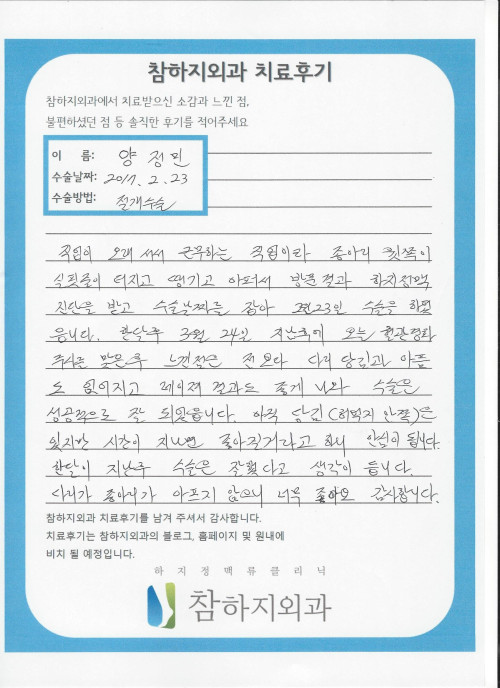 참하지외과 치료후기
참하지외과에서 치료받으신 소감과 느낀 점,
불편하셨던 점 등 솔직한 후기를 적어주세요
이 름: 양 정 민
수술날짜: 2017. 2. 23
수술방법: 절개수술
직업이 오래 서서 근무하는 직업이라 종아리 뒷쪽이
실핏줄이 터지고 땡기고 아퍼서 방문결과 하지정맥
진단을 받고 수술날짜를 잡아 2월23일 수술을 하였
읍니다. 한달후 3월 24일 지난후에 오늘 혈관경화
주사를 맞은후 느낀점은 전보다 다리 당김과 아픔
도 없어지고 레이져 결과도 좋게 나와 수술은
성공적으로 잘 되었읍니다. 아직 당김(허벅지 안쪽)은
있지만 시간이 지나면 좋아질거라고 하니 안심이 됩니다.
한달이 지난후 수술은 잘했다고 생각이 듭니다.
다리가 종아리가 아프지 않으니 너무 좋아요 감사합니다.
참하지외과 치료후기를 남겨 주셔서 감사합니다.
치료후기는 참하지외과의 블로그, 홈페이지 및 원내에
비치 될 예정입니다.
하지정맥류클리닉
참하지외과